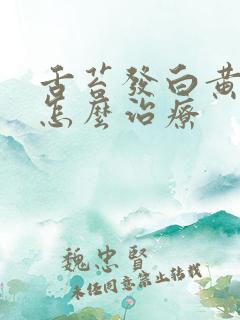 舌苔發白黄
怎麼治療
魏忠賢
未經同意禁止轉載